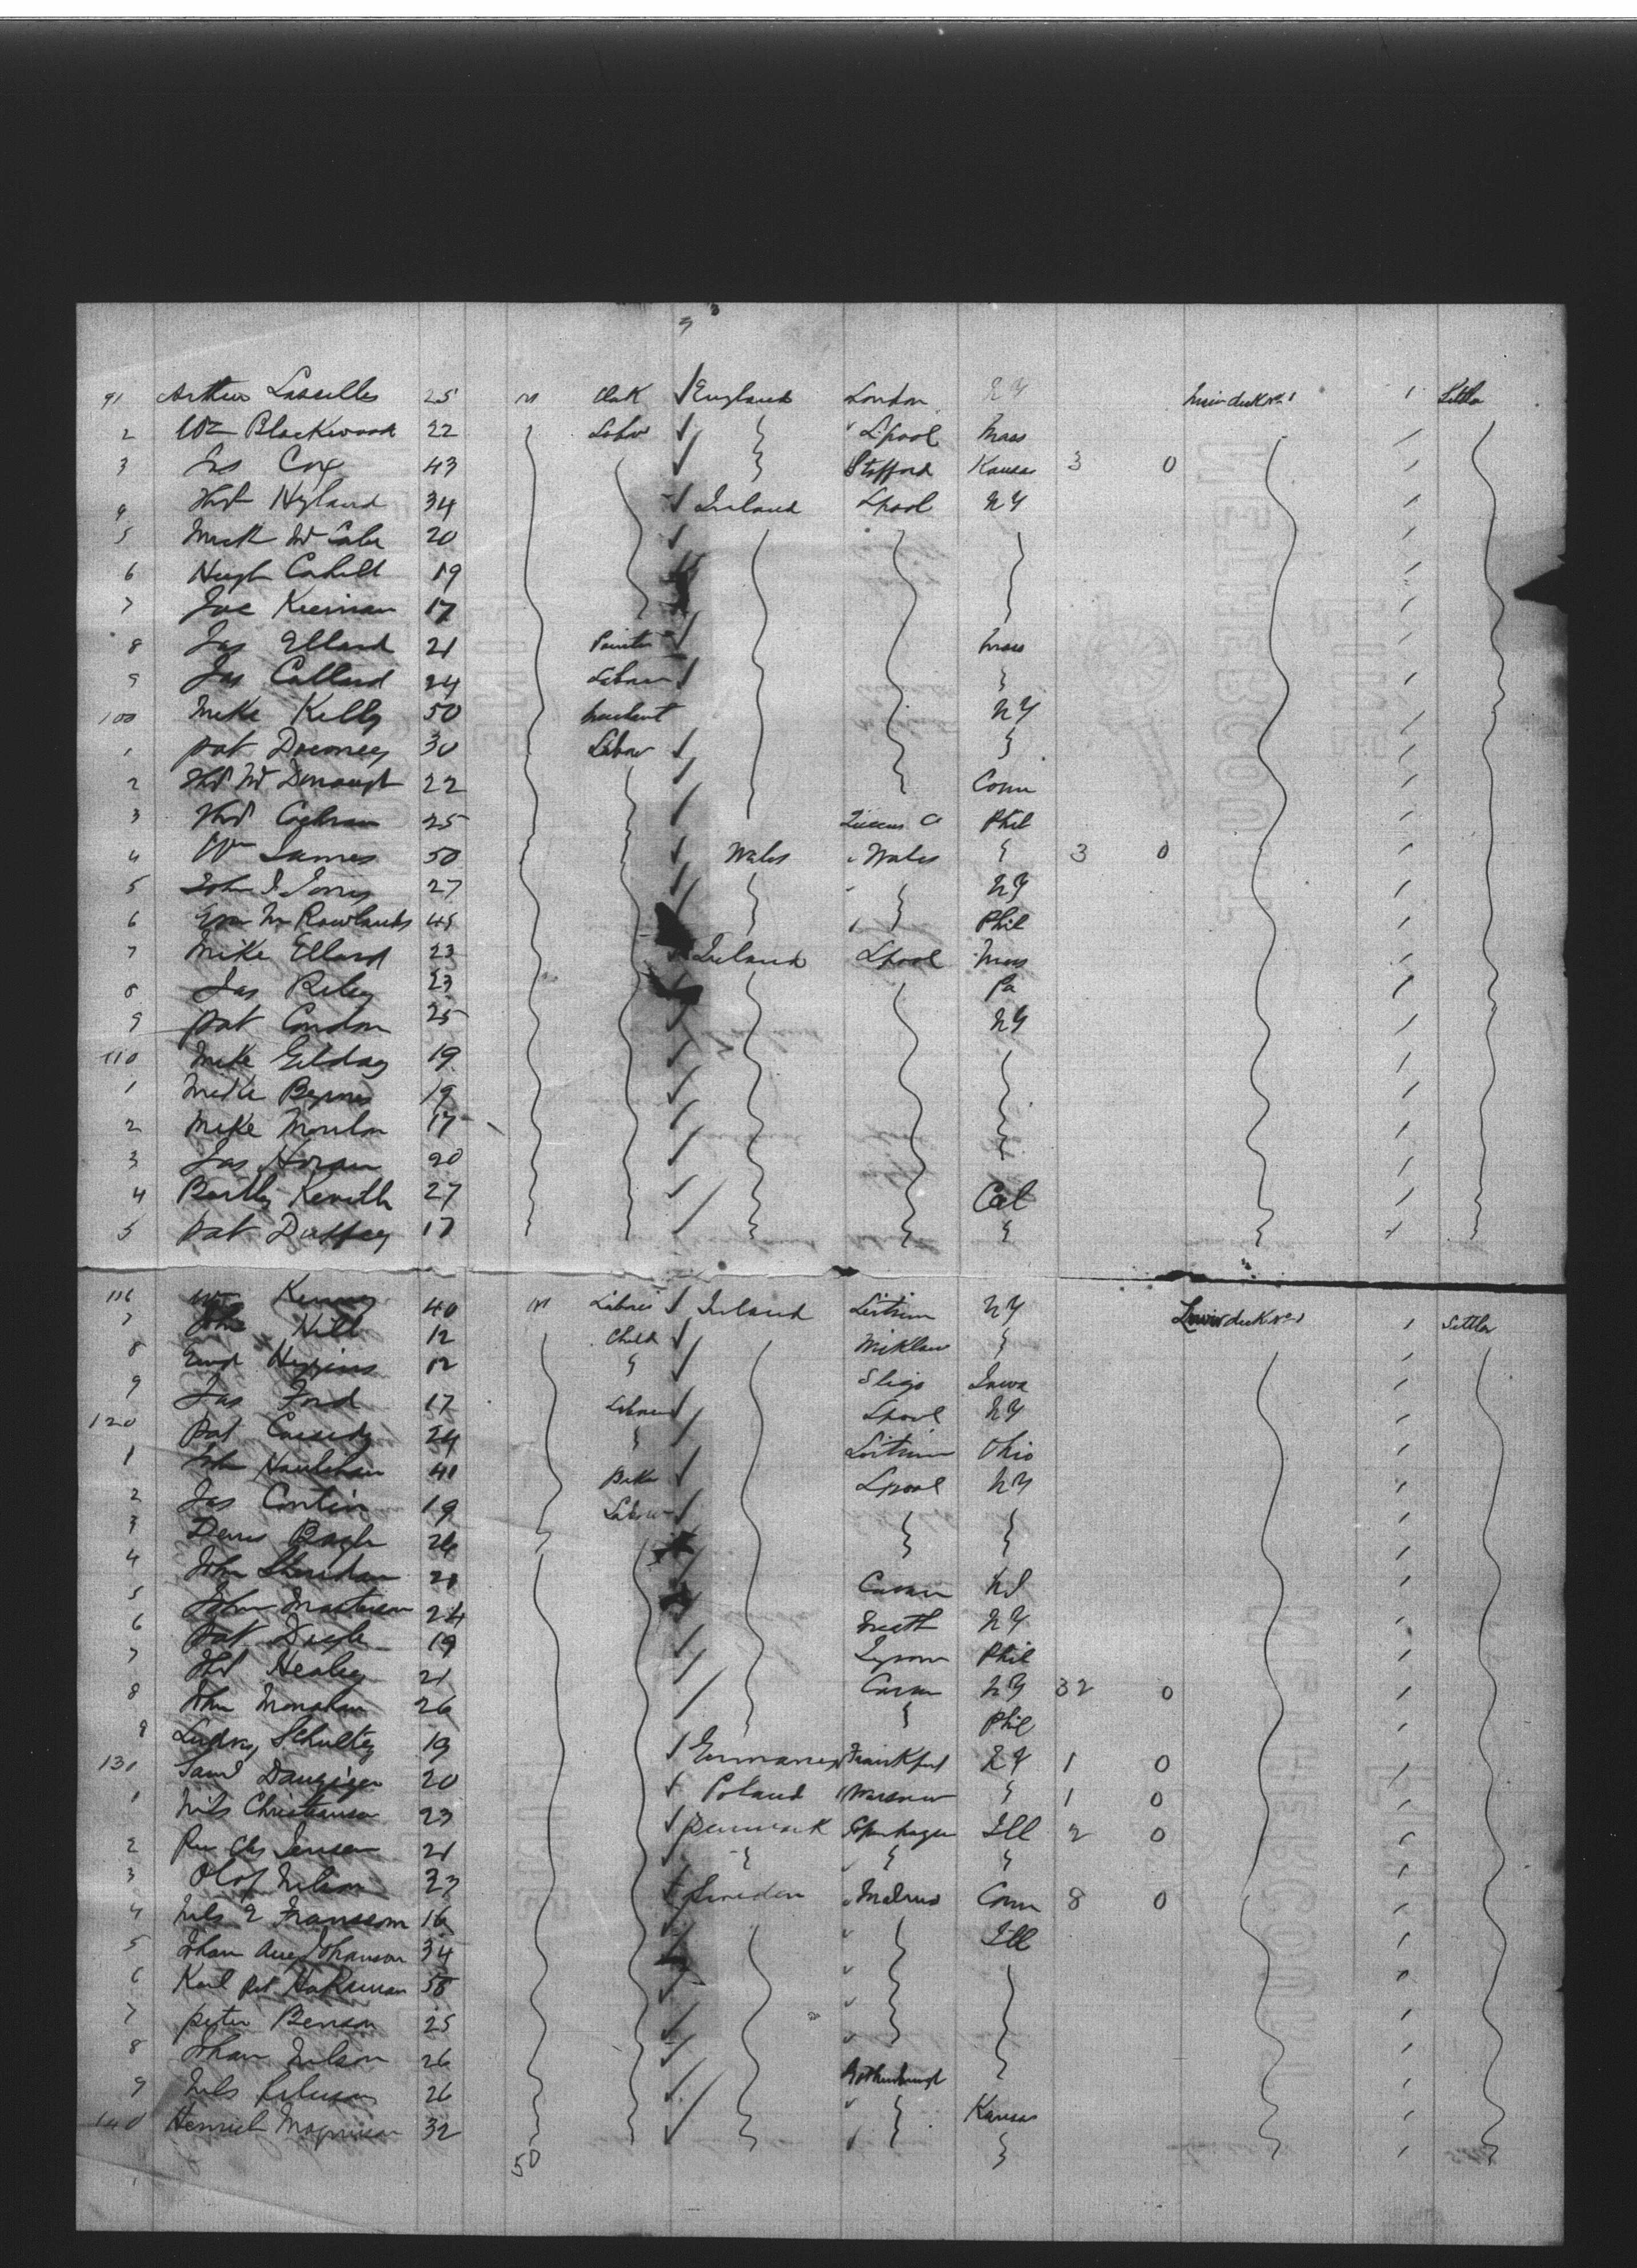 91 Arthur Lasselles 25 M Clerk England London NY 1 Settler
2 Wm Blackwood 22 Labor L'pool Mass
3 Jas Cox 43 Stafford Kansas 3 0
4 Thos Hyland 34 Ireland Lpool NY
5 Mick McCabe 20
6 Hugh Cahill 19
7 Joe Kiernan 17
8 Jas Ellard 21 Painter Mass
9 Jas Callard 24 Laborer
100 Mike Kelly 50 NY
1 Pat Downey 30 Labor
2 Thos McDonough 22 Conn
3 Thos Cochran 25 Queens Co Phil
4 Wm James 50 Wales Wales 3 0
5 John J Jones 27 NY
6 Rowlands 45 Phil
7 Mike Ellard 23 Ireland Lpool Mass
8 Jas Riley 23 Pa
9 Pat Condon 25 NY
110 Mike Gilday 19
1 Mike Byrnes 19
2 Mike 17
3 Jas Horan 20
4 Bartly 27 Cal
5 Pat Duffey 17
116 Wm Kenney 40 M Laborer Ireland Leitrim NY Lower deck No 1 1 Settler
7 John Hill 12 Child
8 Higgins 12 Sligo Iowa
9 Jas Ford 17 Laborer Lpool NY
120 Pat Cassidy 24 Leitrim Ohio
1 John Houlihan 41 Baker Lpool NY
2 Jas Contin 19 Labor
3 Denis 26
4 John Sheridan 21 Cavan
5 John Masterson 24 Meath NY
6 Pat 19 Tyrone Phil
7 Thos Healey 21 Cavan NY 32 0
8 John Monahan 26 Phil
9 Ludwig Schultz 19 Germany Frankfurt NY 1 0
130 Saml Danziger 20 Poland Warsaw 1 0
1 Nils Christianson 23 Denmark Copenhagen Ill 2 0
2 Jensen 21
3 Olof Nelson 23 Sweden Malmo Conn 8 0
4 Nils Franssom 16 Ill
5 Johan Aug Johanson 34
6 Karl Pet Hakanson 58
7 Peter Benson 25
8 Johan Nelson 26
9 Nils 26 Gothenburgh
140 Henrick Magnusson 32 Kansas
50